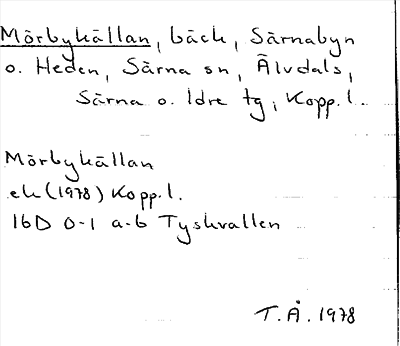 Mörbykällan, bäck, Särnabyn
o. Heden, Särna sn, Älvdals,
Särna o. Idre tg, Kopp.l.
Mörbykällan
ek (1978) Kopp.l.
16D 0-1 a-b Tyskvallen
T.Å. 1978